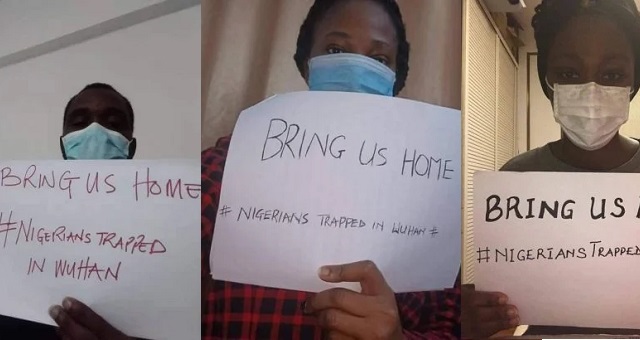 BRING US HOME
#NIGERIANS TRAPPED
IN WUHAN
BRING US HOME
# NIGERIANS TRAPPED IN WUHAN #
BRING US
#NIGERIANS TRAPPED